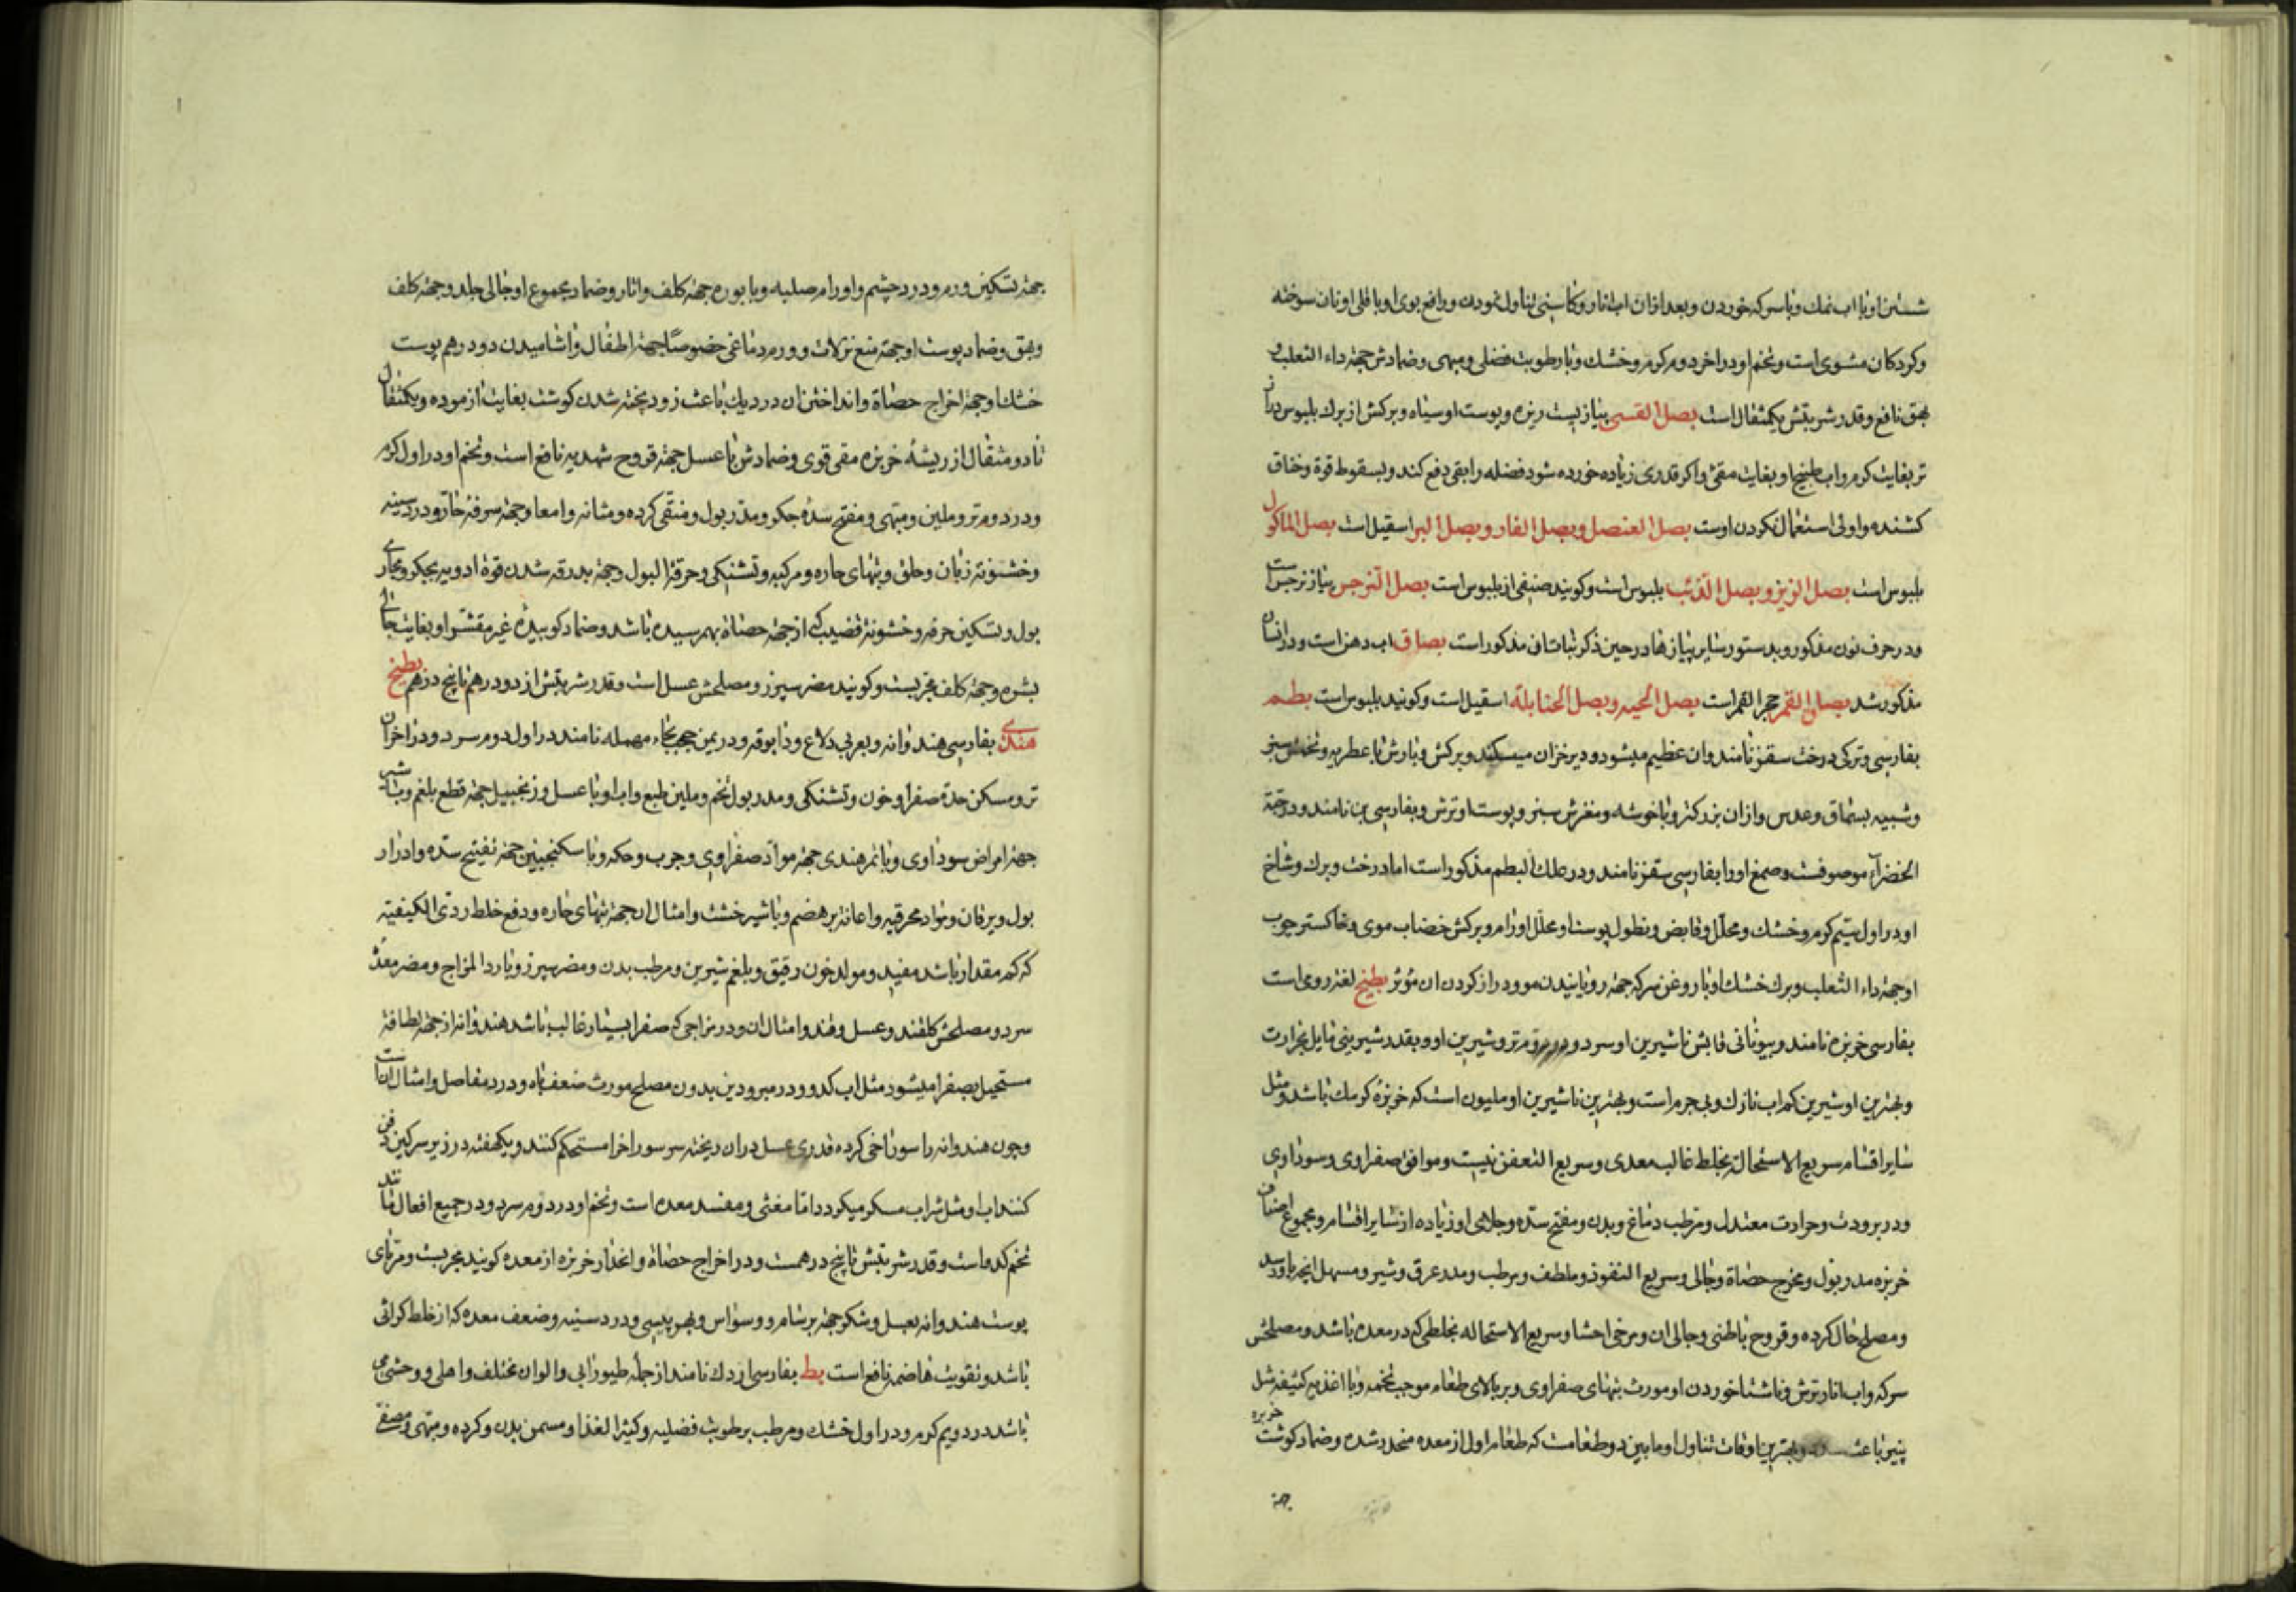 شستن او با اب نمك و با سركه خوردن و بعد از ان اب انار و كاسنی تناول نمودن و رافع بوی او باقلی و نان سوخته
و كردكان مشوی است و تخم او در اخر دوم كرم و خشك و با رطوبت فضلی و مبهی و ضمادش جهة داء الثعلب و
بهق نافع و قدر شربتش یكمثقال است بصل القسی پیاز یست ریزه و پوست او سیاه و بركش از برك بلبوس دراز
تر بغایت كرم و اب طبیخ او بغایت مقئ و اكر قدری زیاده خورده شود فضله را بقی دفع كند و بسقوط قوة و خناق
كشنده و اولی استعمال نكردن اوست بصل العنصل و بصل الفار و بصل البر اسقیل است بصل الماكول
بلبوس است بصل الزیز و بصل الذئب بلبوس است و كویند صنفی از بلبوس است بصل النرجس پیاز نرجس است
و در حرف نون مذكور و بدستور سایر پیازها در حین ذكر نباتات ان مذكور است بصاق اب دهن است و در انسان
مذكور شد بصاق القمر حجر القمر است بصل الحیه و بصل الحنابلة اسقیل است و كویند بلبوس است بطم
بفارسی و تركی درخت سقز نامند و ان عظیم میشود و دیر خزان میكند و بركش و بارش با عطریه و تخمش سبز
و شبیه بسماق و عدس و از ان بزركتر و با خوشه و مغزش سبز و پوست او ترش و بفارسی بن نامند و در حبة
الخضراء موصوفست و صمغ او را بفارسی سقز نامند و در علك البطم مذكور است اما درخت و برك و شاخ
او در اول سیم كرم و خشك و محلل و قابض و نطول پوست او محلل اورام و بركش خضاب موی و خاكستر چوب
او جهة داء الثعلب و برك خشك او با روغن سركه جهة رویانیدن مو و دراز كردن ان مؤثر بطیخ لغة رومی است
بفارسی خربزه نامند و بیونانی قابش ناشیرین او سرد و در دوم تر و شیرین او و بقدر شیرینی مایل بحرارت
و بهترین او شیرین كم اب نازك و بی جرم است و بهترین ناشیرین او ملیون است كه خربزهٔ كرمك باشد و مثل
سایر اقسام سریع الاستحاله بخلط غالب معدی و سریع التعفن نیست و موافق صفراوی و سوداوی
و در برودت و حرارت معتدل و مرطب دماغ و بدن و مفتح سده و جلای او زیاده از سایر اقسام و مجموع اصناف
خربزه مدر بول و مخرج حصاة و جالی و سریع النفوذ و ملطف و مرطب و مدر عرق و شیر و مسهل انچه باو رسد
و مصلح حال كرده و قروح باطنی و جالی ان و مرخی احشا و سریع الاستحاله بخلطی كه در معده باشد و مصلحش
سركه و اب انار ترش و ناشتا خوردن او مورث تبهای صفراوی و بر بالای طعام موجب تخمه و با اغذیه كثیفه مثل
پنیر باعث و بهترین اوقات تناول او ما بین دو طعامست كه طعام اول از معده منحدر شده و ضماد كوشت خربزه
جهة
جهة تسكین ورم و درد چشم و اورام صلبه و با بوره جهة كلف و اثار و ضماد مجموع او جالی جلد و جهة كلف
و بهق و ضماد پوست او جهة منع نزلات و ورم دماغی خصوصًا جهة اطفال و اشامیدن دو درهم پوست
خشك او جهة اخراج حصاة و انداختن ان در دیك باعث زود پخته شدن كوشت بغایت ازموده و یكمثقال
تا دو مثقال از ریشهٔ خربزه مقی قوی و ضمادش با عسل جهة قروح شهدیه نافع است و تخم او در اول كرم
و در دوم تر و ملین و مبهی و مفتح سدهٔ جكر و مدر بول و منقی كرده و مثانه و امعا و جهة سرفهٔ حار و درد سینه
و خشونة زبان و حلق و تبهای حاره و مركبه و تشنكی و حرقة البول و جهة بدرقه شدن قوة ادویه بجكر و مجاری
بول و تسكین حرقه و خشونة قضیب كه از جهة حصاة بهم رسیده باشد و ضماد كوبیدهٔ غیر مقشر او بغایت جالی
بشره و جهة كلف مجربست و كویند مضر سپرز و مصلحش عسل است و قدر شربتش از دو درهم تا پنج درهم بطیخ
هندی بفارسی هندوانه و بعربی دلاع و دابوقه و در یمن جحب بحاء مهمله نامند در اول دوم سرد و در اخر ان
تر و مسكن حدة صفرا و خون و تشنكی و مدر بول تخم و ملین طبع و اب او با عسل و زنجبیل جهة قطع بلغم و با شیر
جهة امراض سوداوی و با تمر هندی جهة مواد صفراوی و جرب و حكه و با سكنجبین جهة تفتیح سده و ادرار
بول و یرقان و مواد محرقیه و اعانة بر هضم و با شیر خشت و امثال ان جهة تبهای حاره و دفع خلط ردی الكیفیة
كه كم مقدار باشد مفید و مولد خون رقیق و بلغم شیرین و مرطب بدن و مضر سپرز و بارد المزاج و مضر معدهٔ
سرد و مصلحش كلقند و عسل و قند و امثال ان و در مزاجی كه صفرا بسیار غالب باشد هندوانه از جهة لطافة
مستحیل بصفرا میشود مثل اب كدو و در مبرودین بدون مصلح مورث ضعف باه و درد مفاصل و امثال ان است
و چون هندوانه را سوراخی كرده قدری عسل در ان ریخته سر سوراخ را مستحكم كنند و یكهفته در زیر سركین دفن
كنند اب او مثل شراب مسكر میكردد اما مغثی و مفسد معده است و تخم او در دوم سرد و در جمیع افعال مانند
تخم كدو است و قدر شربتش تا پنج درهمست و در اخراج حصاة و انحدار خربزه از معده كویند مجربست و مربای
پوست هندوانه بعسل و شكر جهة برسام و وسواس و بهر پسی و درد سینه و ضعف معده كه از خلط كراثی
باشد و تقویت هاضمه نافع است بط بفارسی اردك نامند از جمله طیور ابی و الوان مختلف و اهلی و وحشی می
باشد در دویم كرم و در اول خشك و مرطب برطوبت فضلیه و كثیر الغذا و مسمن بدن و كرده و مبهی و مصفی